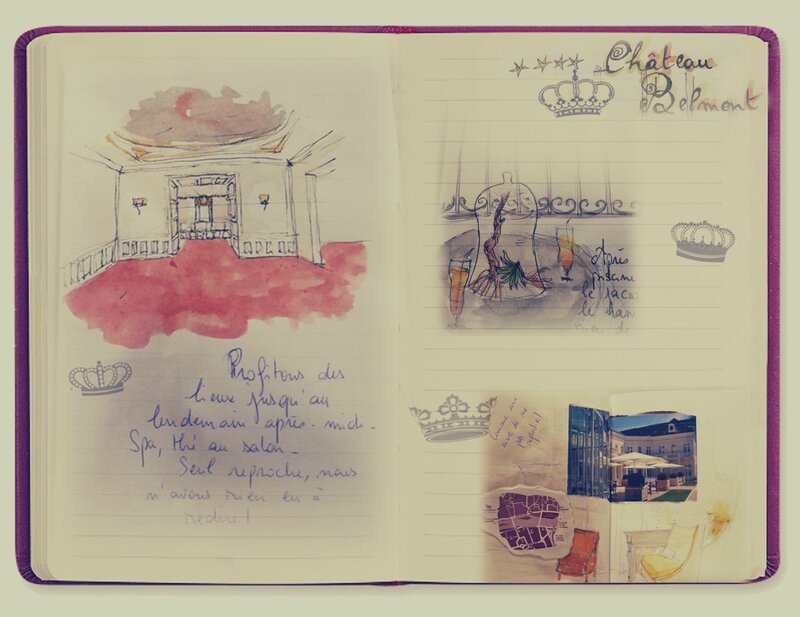 Profitons des
lieux jusqu'au
lendemain après-midi.
Spa, thé au salon.
Seul reproche, nous
n'avons rien eu à
redire!
Château
Belmont
Après
piscine
le jacu
le ham
rien de